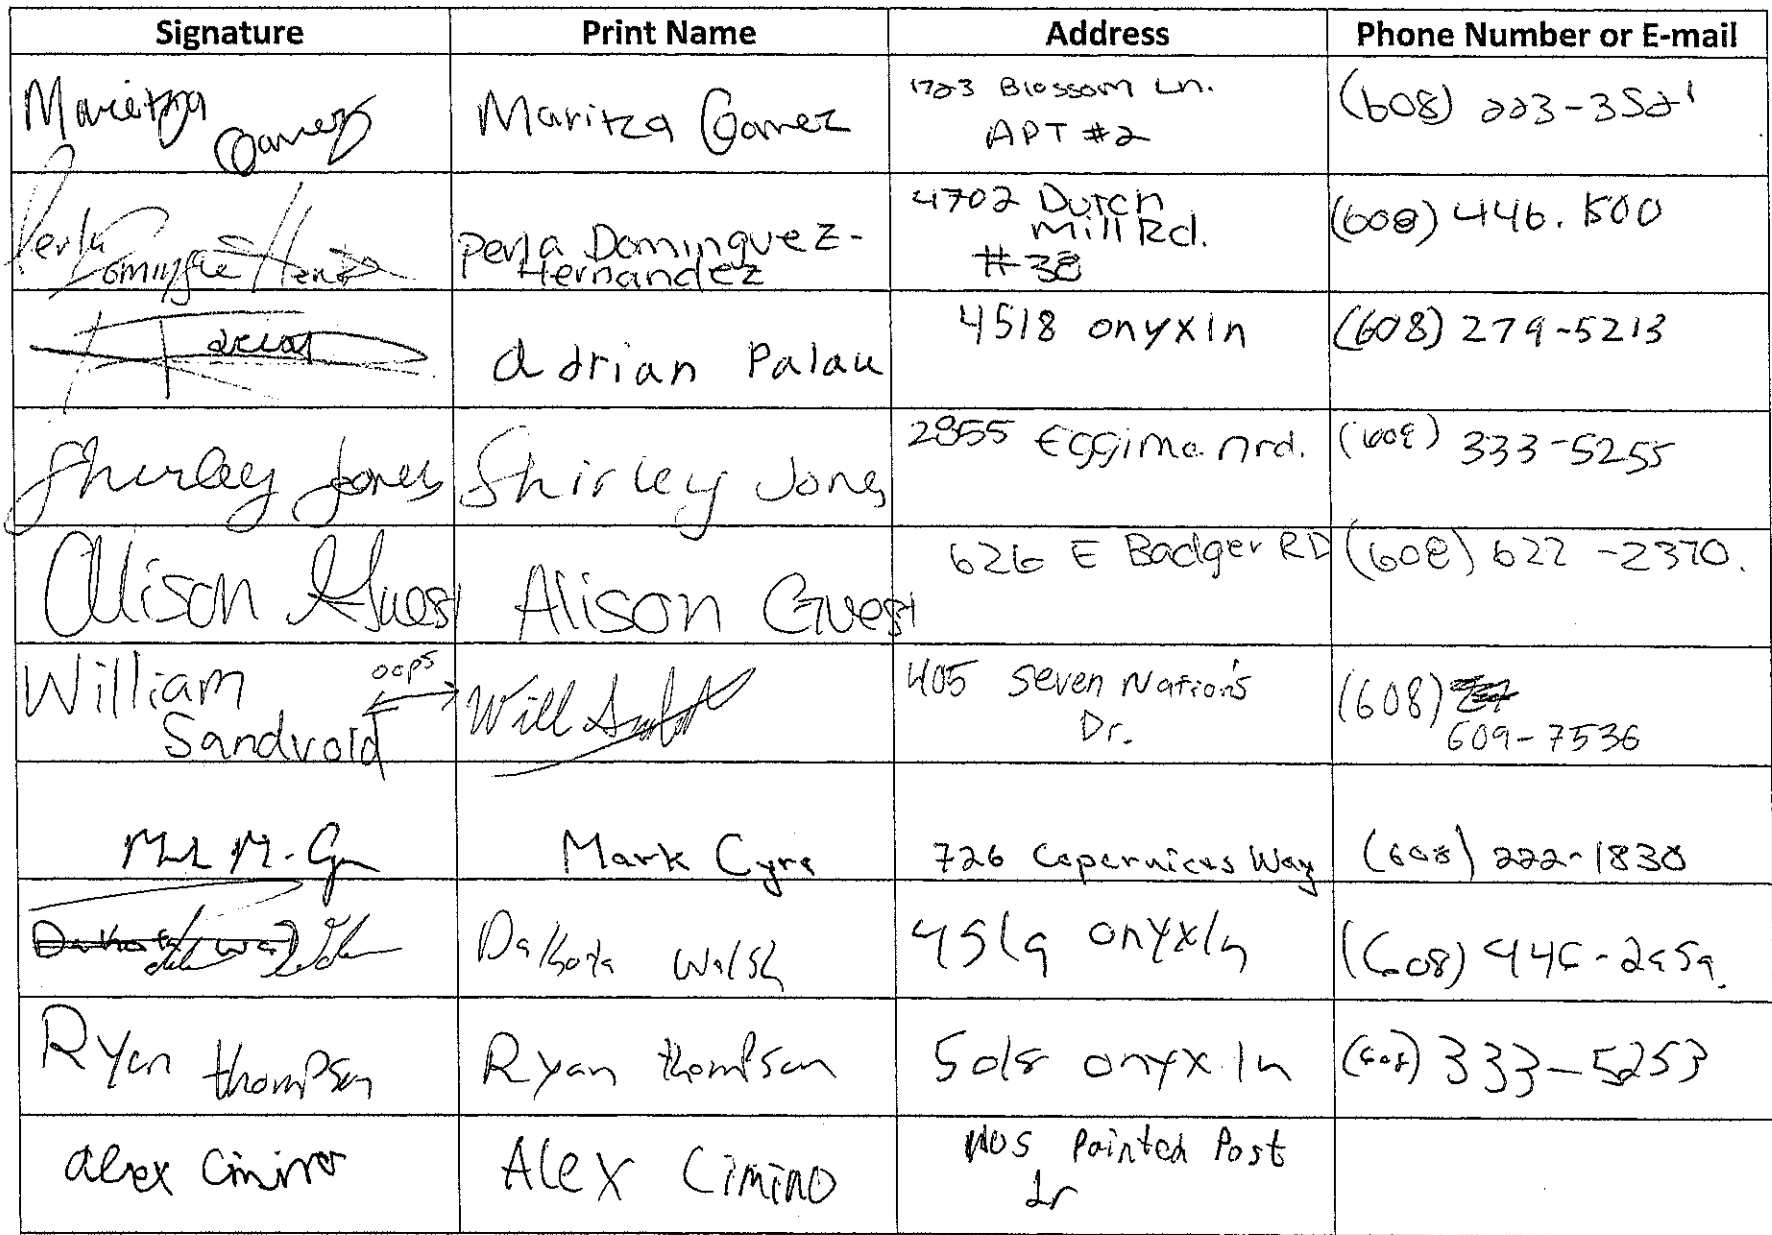 Signature Print Name Address Phone Number or E-mail
Maritza Gamez Maritza Gamez 1723 Blossom Ln. (608) 223-3521
APT #2
Perla Perla Dominguez- 4702 Dutch (608) 446.1500
Hernandez Mill Rd.
#38
adrian Palau 4518 onyx ln (608) 279-5213
Shirley Jones Shirley Jones 2855 Eggimanrd. (608) 333-5255
Alison Guest Alison Guest 626 E Badger RD (608) 622-2370.
William oops Will 405 Seven Nations (608)
Sandvold Dr. 609-7536
Mark Cyre 726 Copernicus Way (608) 222-1830
Dakota Walsh onyx ln (608)
Ryan thompson Ryan thompson 5018 onyx ln (608) 333-5253
alex Cimino Alex Cimino Painted Post
dr